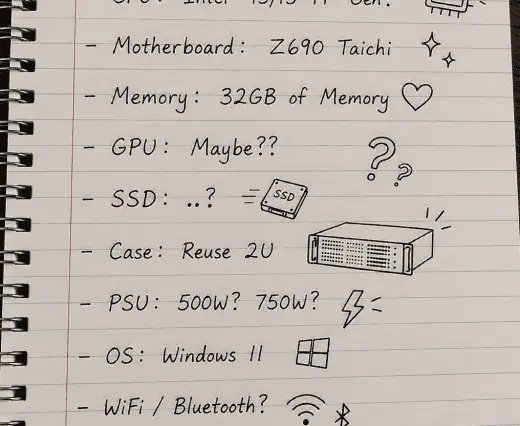 - Motherboard: Z690 Taichi
- Memory: 32GB of Memory
- GPU: Maybe??
- SSD: ..?
SSD
- Case: Reuse 2U
- PSU: 500W? 750W?
- OS: Windows 11
- WiFi / Bluetooth?